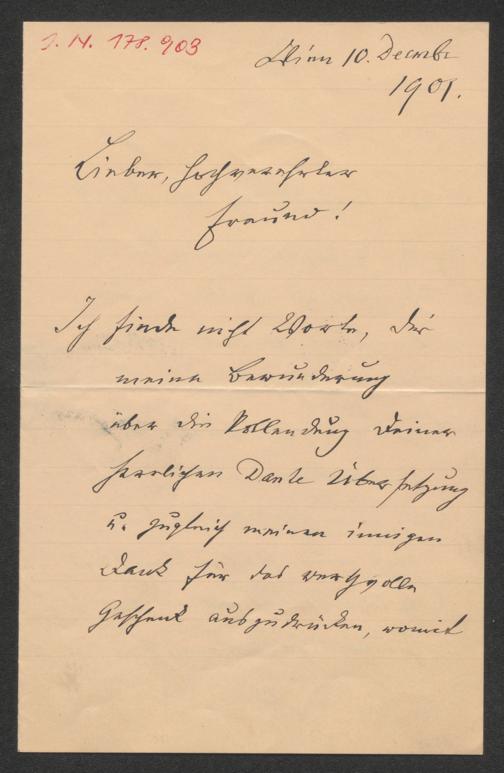 J. N. 178.903
Wien 10. Decembe
1901.
Lieber, hochverehrter
Freund!
Ich finde nicht Worte, dir
meine Bewunderung
über die Vollendung Deiner
herrlichen Dante Übersetzung
u. zugleich meinen innigen
Dank für das wertvolle
Geschenk auszudrücken, womit